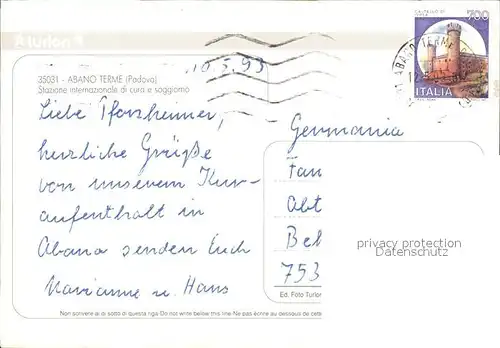 turlon
700
ITALIA
ABANO TERME
10.5.93
35031 - ABANO TERME (Padova)
Stazione internazionale di cura e soggiorno
Liebe Pforzheimer,
herzliche Grüße
von unserem Kur-
aufenthalt in
Abano senden Euch
Marianne u. Hans
Germania
Fam
Abt
Bel
753
privacy protection
Datenschutz
Ed. Foto Turlon
Non scrivere al di sotto di questa riga · Do not write below this line · Ne pas écrire au dessous de cette